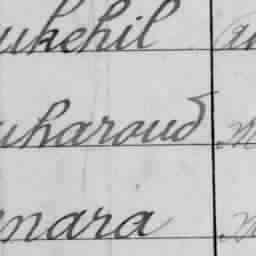 ukehil
uharoud
nara